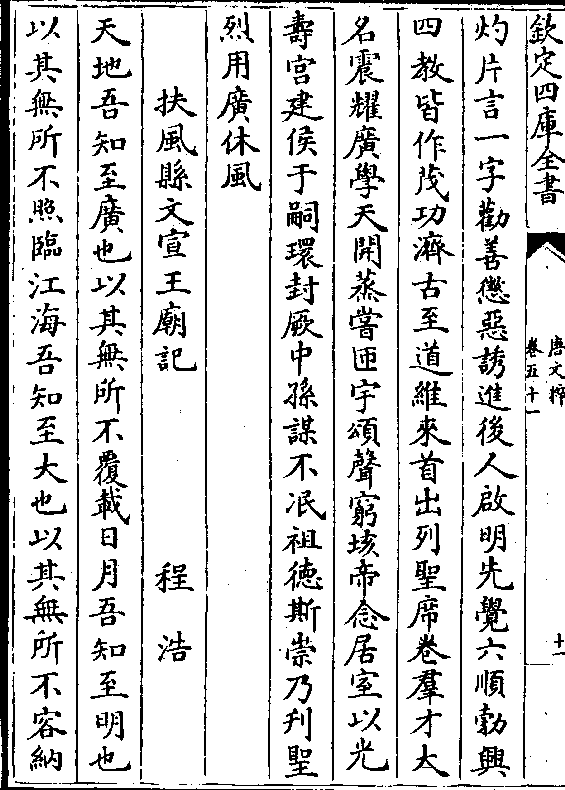 欽定四庫全書
唐文粹
卷五十一
十一
灼片言一字勸善懲惡誘進後人啟明先覺六順勃興
四教皆作茂功濟古至道維來首出列聖席卷羣才大
名震耀廣學天開蒸嘗匝宇頌聲窮垓帝念居室以光
壽宫建侯于嗣環封厥中孫謀不泯祖德斯崇乃刋聖
烈用廣休風
扶風縣文宣王廟記 程浩
天地吾知至廣也以其無所不覆載日月吾知至明也
以其無所不照臨江海吾知至大也以其無所不容納